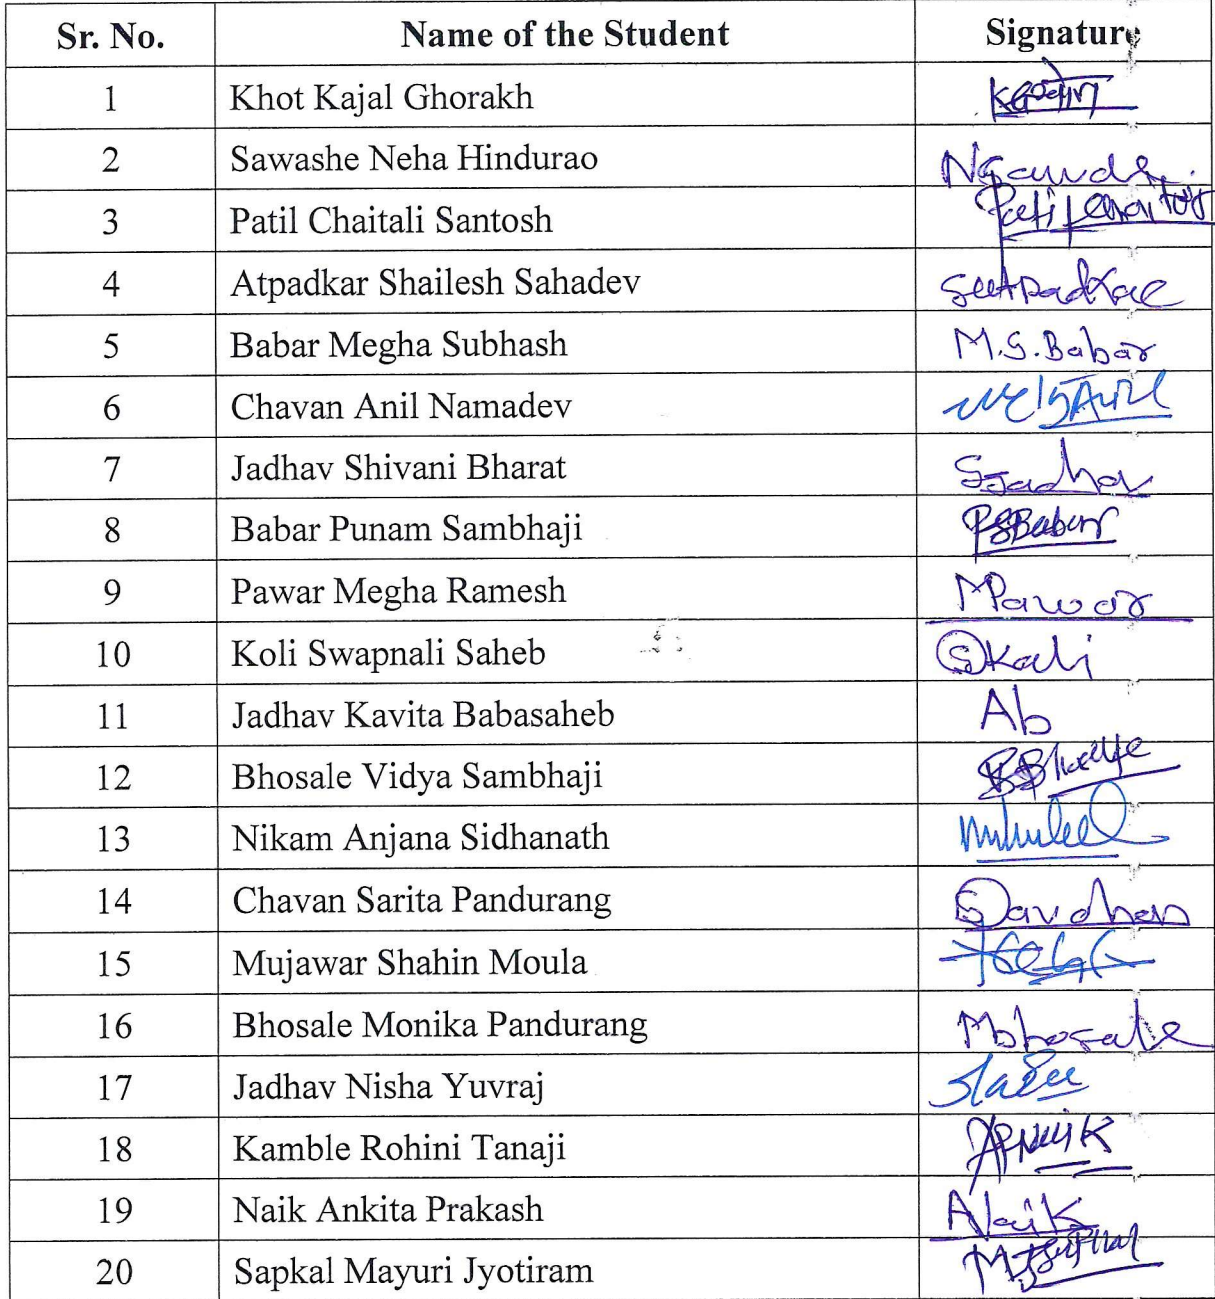 Sr. No. Name of the Student Signature
1 Khot Kajal Ghorakh
2 Sawashe Neha Hindurao
3 Patil Chaitali Santosh
4 Atpadkar Shailesh Sahadev
5 Babar Megha Subhash M.S.Babar
6 Chavan Anil Namadev
7 Jadhav Shivani Bharat SJadhav
8 Babar Punam Sambhaji PSBabar
9 Pawar Megha Ramesh MPawar
10 Koli Swapnali Saheb SKoli
11 Jadhav Kavita Babasaheb Ab
12 Bhosale Vidya Sambhaji
13 Nikam Anjana Sidhanath
14 Chavan Sarita Pandurang
15 Mujawar Shahin Moula
16 Bhosale Monika Pandurang Mbhosale
17 Jadhav Nisha Yuvraj
18 Kamble Rohini Tanaji
19 Naik Ankita Prakash ANaik
20 Sapkal Mayuri Jyotiram